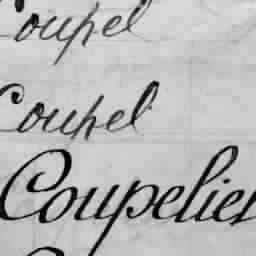 Coupel
Coupel
Coupelier